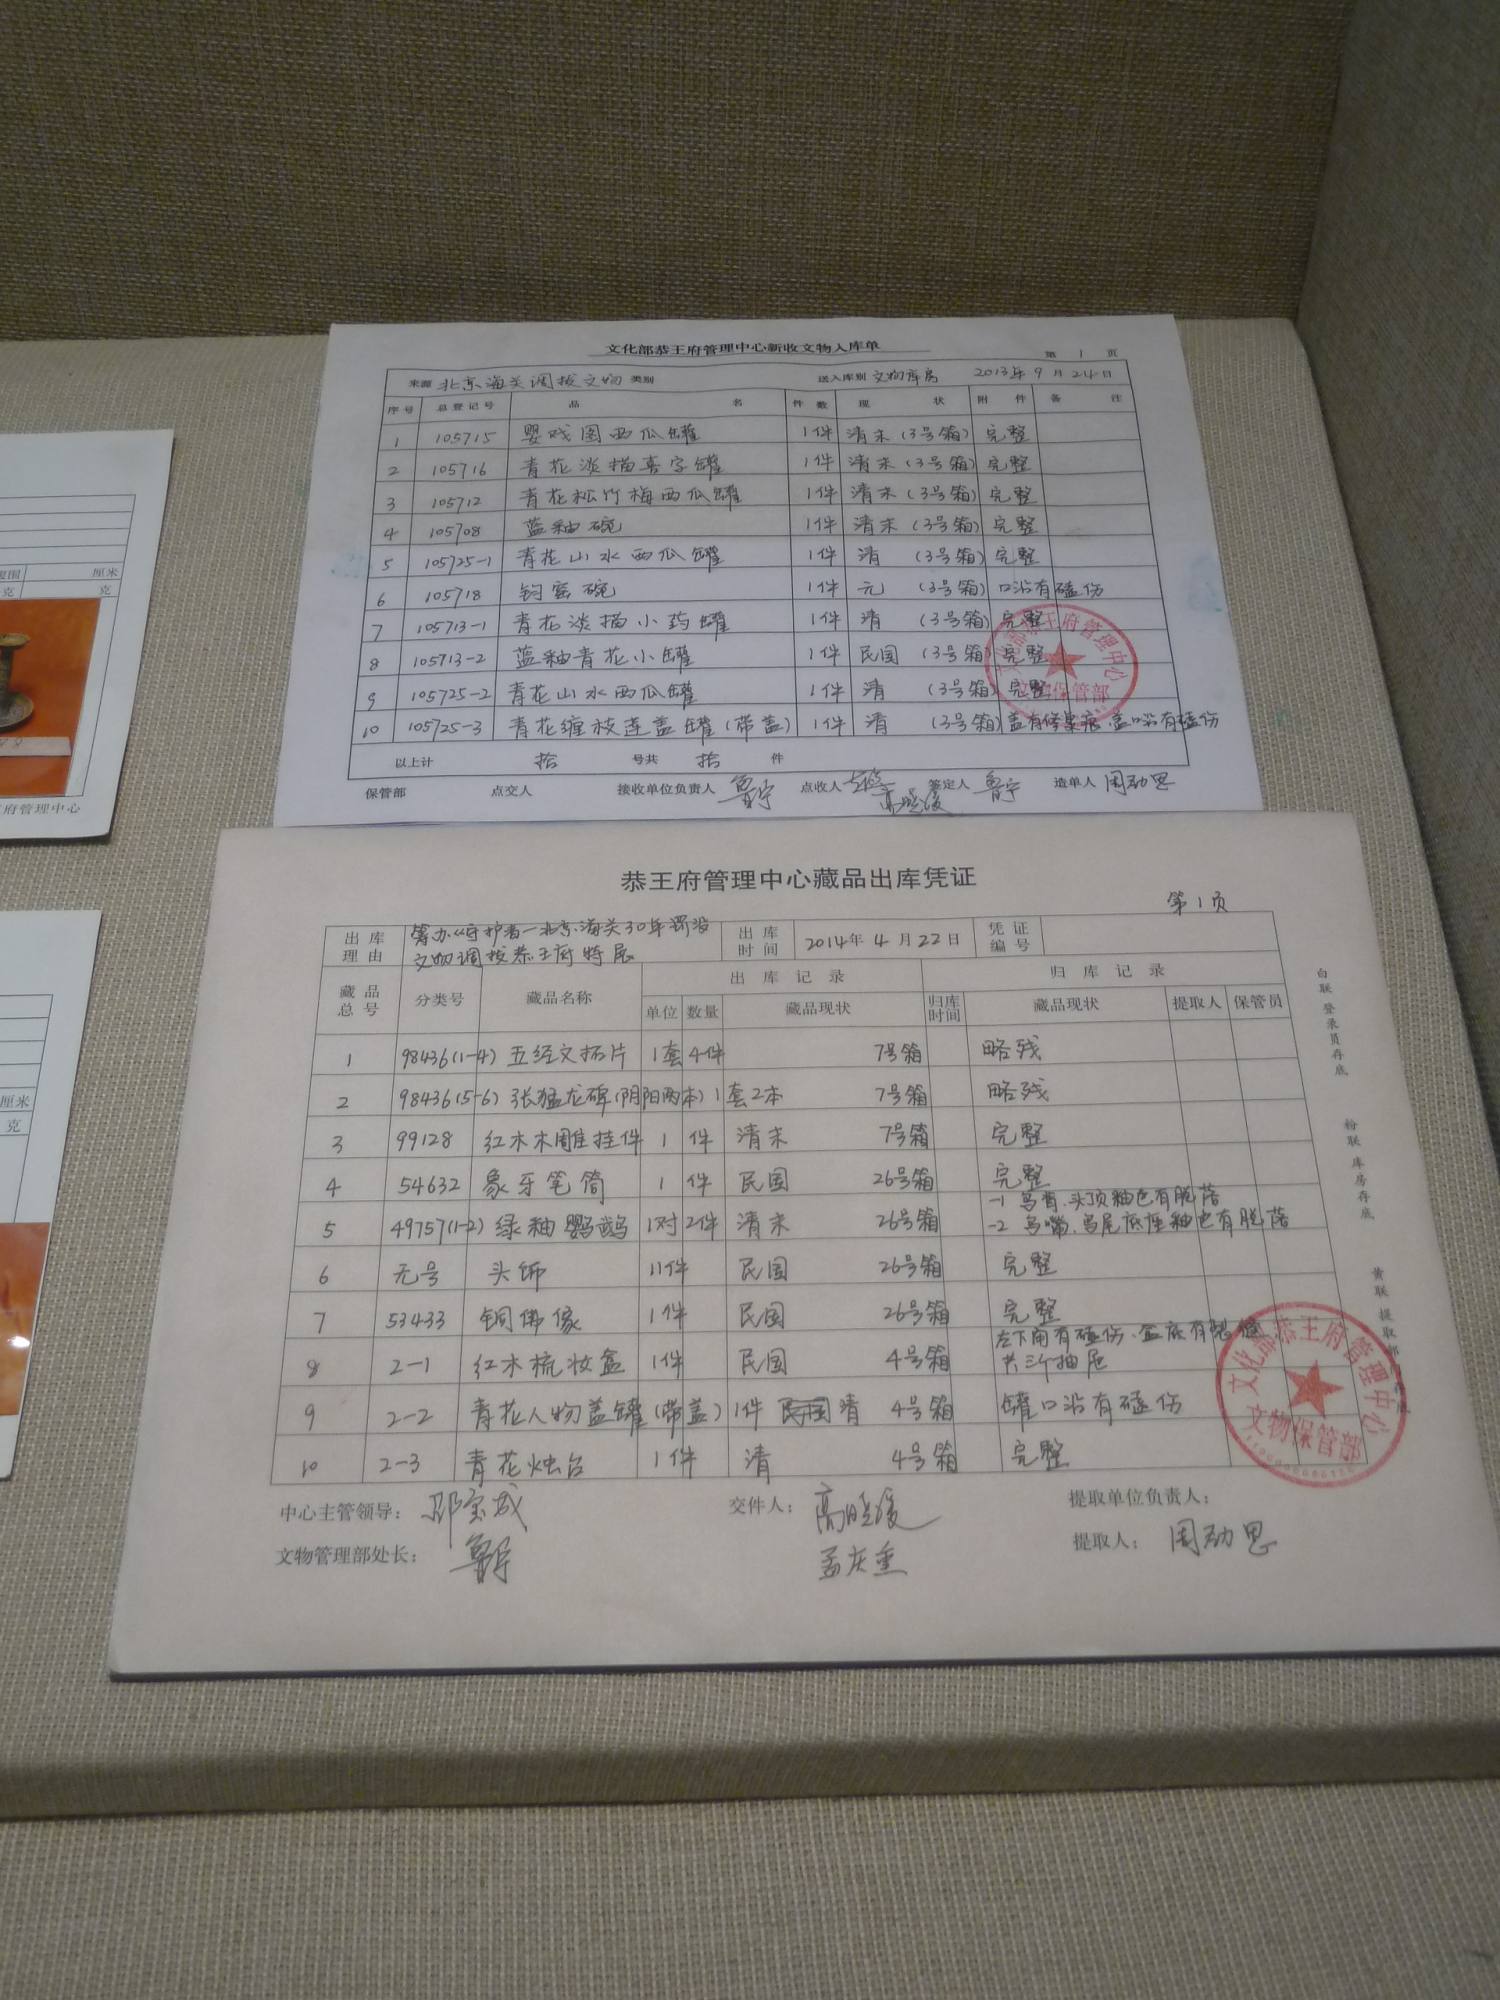 文化部恭王府管理中心新收文物入库单
第 1 页
来源 北京海关调拨文物 类别 送入库别 文物库房 2013年 9 月 24日
序号 总登记号 品 名 件 数 现 状 附 件 备 注
1 105715 婴戏图西瓜罐 1件 清末(3号箱) 完整
2 105716 青花淡描喜字罐 1件 清末(3号箱) 完整
3 105712 青花松竹梅西瓜罐 1件 清末(3号箱) 完整
4 105708 蓝釉碗 1件 清末(3号箱) 完整
5 105725-1 青花山水西瓜罐 1件 清 (3号箱) 完整
6 105718 钧窑碗 1件 元 (3号箱) 口沿有磕伤
7 105713-1 青花淡描小药罐 1件 清 (3号箱) 完整
8 105713-2 蓝釉青花小罐 1件 民国 (3号箱) 完整
9 105725-2 青花山水西瓜罐 1件 清 (3号箱) 完整
10 105725-3 青花缠枝莲盖罐(带盖) 1件 清 (3号箱) 盖有修复痕.盖口沿有磕伤
以上计 拾 号共 拾 件
保管部 点交人 接收单位负责人 鲁宁 点收人 高晓媛 签定人 鲁宁 造单人 周劲思
文化部恭王府管理中心
文物保管部
恭王府管理中心藏品出库凭证
第1页
出库理由 筹办《守护者—北京海关30年罚没
文物调拨恭王府特展
出库时间 2014年 4 月 22日 凭证编号
藏品总号 分类号 藏品名称 出库记录 归库记录
单位 数量 藏品现状 归库时间 藏品现状 提取人 保管员
1 98436(1-4) 五经文拓片 1套 4件 7号箱 略残
2 98436(5-6) 张猛龙碑(阴阳两本) 1套2本 7号箱 略残
3 99128 红木木雕挂件 1 件 清末 7号箱 完整
4 54632 象牙笔筒 1 件 民国 26号箱 完整
5 49757(1-2) 绿釉鹦鹉 1对 2件 清末 26号箱 -1 鸟首.头顶釉色有脱落
-2 鸟嘴.鸟尾底座釉色有脱落
6 无号 头饰 11件 民国 26号箱 完整
7 53433 铜佛像 1件 民国 26号箱 完整
8 2-1 红木梳妆盒 1件 民国 4号箱 左下角有磕伤.盒底有裂缝
共三个抽屉
9 2-2 青花人物盖罐(带盖) 1件 民国 清 4号箱 罐口沿有磕伤
10 2-3 青花烛台 1件 清 4号箱 完整
中心主管领导: 邵宝成 交件人: 高晓媛 提取单位负责人:
文物管理部处长: 鲁宁 孟庆重 提取人: 周劲思
白联 登录员存底
粉联 库房存底
黄联 提取部门存底
文化部恭王府管理中心
文物保管部
腹围 厘米
克
王府管理中心
厘米
克